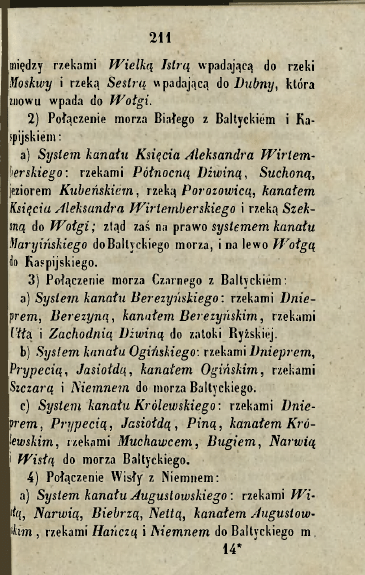 211
między rzekami Wielką Istrą wpadającą do rzeki
Moskwy i rzeką Sestrą wpadającą do Dubny, która
znowu wpada do Wołgi.
2) Połączenie morza Białego z Baltyckiém i Ka-
spijskiem:
a) System kanału Księcia Aleksandra Wirtem-
berskiego: rzekami Północną Dźwiną, Suchoną,
jeziorem Kubeńskiem, rzeką Porozowicą, kanałem
Księcia Aleksandra Wirtemberskiego i rzeką Szek-
sną do Wołgi; ztąd zaś na prawo systemem kanału
Maryińskiego do Baltyckiego morza, i na lewo Wołgą
do Kaspijskiego.
3) Połączenie morza Czarnego z Baltyckiém:
a) System kanału Berezyńskiego: rzekami Dnie-
prem, Berezyną, kanałem Berezyńskim, rzekami
Ułłą i Zachodnią Dźwiną do zatoki Ryżskiej.
b) System kanału Ogińskiego: rzekami Dnieprem,
Prypecią, Jasiołdą, kanałem Ogińskim, rzekami
Szczarą i Niemnem do morza Baltyckiego.
c) System kanału Królewskiego: rzekami Dnie-
prem, Prypecią, Jasiołdą, Piną, kanałem Kró-
lewskim, rzekami Muchawcem, Bugiem, Narwią
i Wisłą do morza Baltyckiego.
4) Połączenie Wisły z Niemnem:
a) System kanału Augustowskiego: rzekami Wi-
słą, Narwią, Biebrzą, Nettą, kanałem Augustow-
skim, rzekami Hańczą i Niemnem do Baltyckiego m
14*